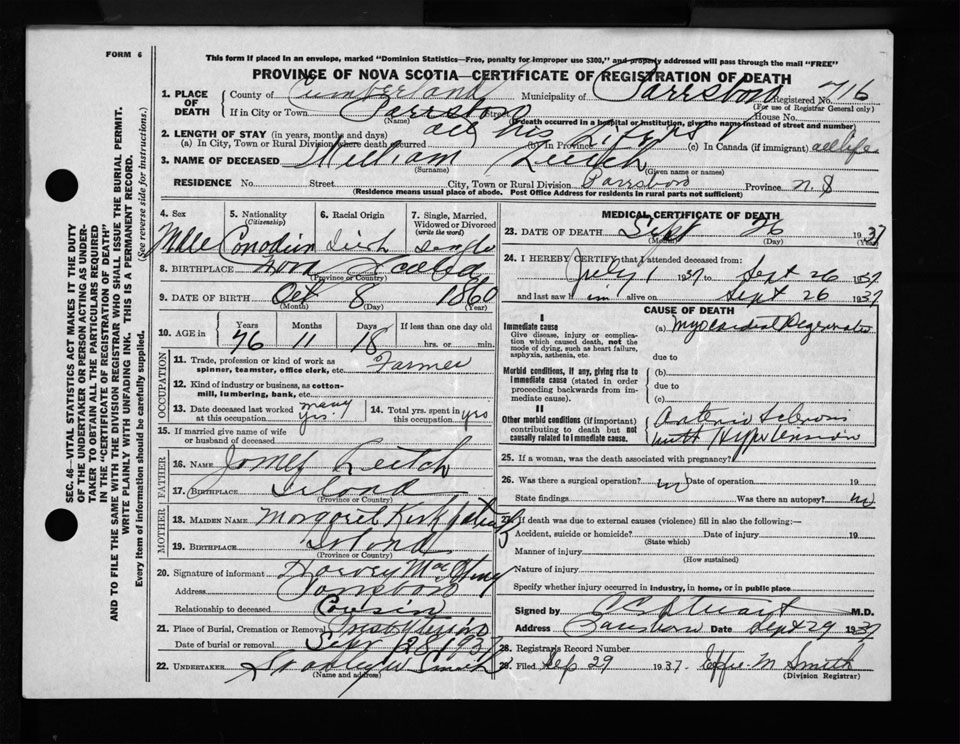 FORM 6
This form if placed in an envelope, marked "Dominion Statistics—Free, penalty for improper use $300," and properly addressed will pass through the mail "FREE"
PROVINCE OF NOVA SCOTIA—CERTIFICATE OF REGISTRATION OF DEATH
SEC. 46—VITAL STATISTICS ACT MAKES IT THE DUTY
OF THE UNDERTAKER OR PERSON ACTING AS UNDER-
TAKER TO OBTAIN ALL THE PARTICULARS REQUIRED
IN THE "CERTIFICATE OF REGISTRATION OF DEATH"
AND TO FILE THE SAME WITH THE DIVISION REGISTRAR WHO SHALL ISSUE THE BURIAL PERMIT.
WRITE PLAINLY WITH UNFADING INK. THIS IS A PERMANENT RECORD.
Every item of information should be carefully supplied. (See reverse side for instructions.)
1. PLACE OF DEATH County of Cumberland Municipality of Parrsboro Registered No. 716
(For use of Registrar General only)
If in City or Town Parrsboro Street House No.
(Name) (If death occurred in a hospital or institution, give the name instead of street and number)
2. LENGTH OF STAY (in years, months and days) all his life
(a) In City, Town or Rural Division where death occurred (b) In Province (c) In Canada (if immigrant) all life
3. NAME OF DECEASED William Leitch
(Surname) (Given name or names)
RESIDENCE No. Street City, Town or Rural Division Parrsboro Province N.S
(Residence means usual place of abode. Post Office Address for residents in rural parts not sufficient)
4. Sex Male
5. Nationality (Citizenship) Canadian
6. Racial Origin Irish
7. Single, Married, Widowed or Divorced (write the word) single
8. BIRTHPLACE Nova Scotia
(Province or Country)
9. DATE OF BIRTH Oct 8 1860
(Month) (Day) (Year)
10. AGE in Years 76 Months 11 Days 18 If less than one day old hrs. or min.
OCCUPATION
11. Trade, profession or kind of work as spinner, teamster, office clerk, etc. Farmer
12. Kind of industry or business, as cotton-mill, lumbering, bank, etc.
13. Date deceased last worked at this occupation many yrs.
14. Total yrs. spent in this occupation yrs
15. If married give name of wife or husband of deceased
FATHER
16. NAME James Leitch
17. BIRTHPLACE Ireland
(Province or Country)
MOTHER
18. MAIDEN NAME Margaret Kirkpatrick
19. BIRTHPLACE Ireland
(Province or Country)
20. Signature of informant Harvey
Address Parrsboro
Relationship to deceased Cousin
21. Place of Burial, Cremation or Removal Presbyterian
Date of burial or removal Sept 28 1937
22. UNDERTAKER Stanley Smith
(Name and address)
MEDICAL CERTIFICATE OF DEATH
23. DATE OF DEATH Sept 26 1937
(Month) (Day) (Year)
24. I HEREBY CERTIFY that I attended deceased from:
July 1 1937 to Sept 26 1937
and last saw him alive on Sept 26 1937
CAUSE OF DEATH
I
Immediate cause
Give disease, injury or complication which caused death, not the mode of dying, such as heart failure, asphyxia, asthenia, etc.
(a) Myocardial Degeneration
due to
Morbid conditions, if any, giving rise to immediate cause (stated in order proceeding backwards from immediate cause).
(b)
due to
(c)
II
Other morbid conditions (if important) contributing to death but not causally related to immediate cause.
Arterio Sclerosis
with Hypertension
25. If a woman, was the death associated with pregnancy?
26. Was there a surgical operation? no Date of operation 19
State findings Was there an autopsy? no
27. If death was due to external causes (violence) fill in also the following:—
Accident, suicide or homicide? Date of injury 19
(State which)
Manner of injury
(How sustained)
Nature of injury
Specify whether injury occurred in industry, in home, or in public place
Signed by Stuart M.D.
Address Parrsboro Date Sept 29 1937
28. Registrar's Record Number
29. Filed Sep. 29 1937. Effie M Smith
(Division Registrar)